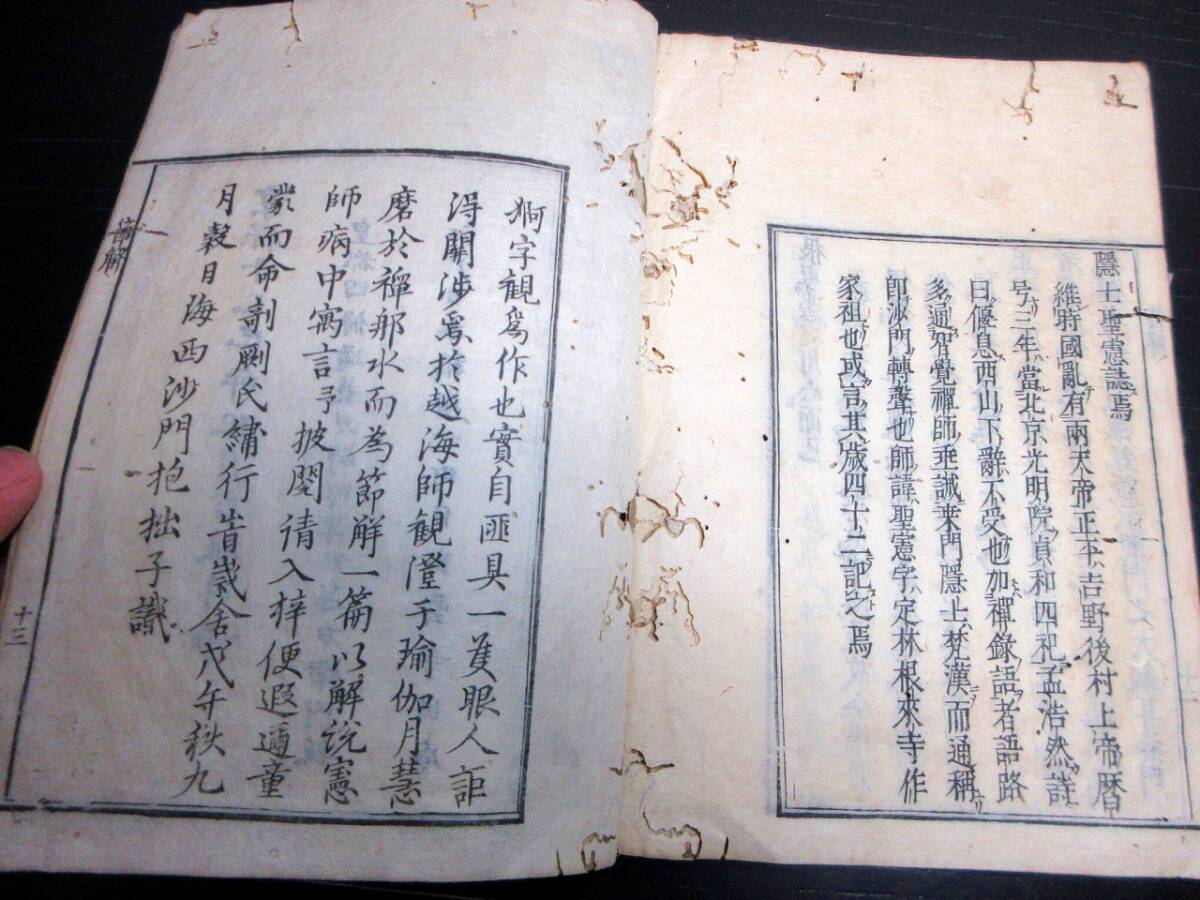 隱士聖憲誌焉
維時國亂有兩天帝正平吉野後村上帝暦
号三年當北京光明院貞和四祀孟浩然詩
曰偃息西山下辭不受也加禪錄語者語路
多通智覺禪師垂誡乘門隱士梵漢而通稱
即沙門轉聲也師諱聖憲字定林根來寺作
家祖也或言其歲四十二記之焉
字觀爲作也實自匪具一隻眼人詎
得關涉焉於越海師觀澄于瑜伽月慧
磨於禪那水而為節解一篇以解說憲
師病中寓言予披閱請入梓便遐邇童
蒙而命剞劂氏繡行旹歲舍戊午秋九
月穀旦海西沙門抱拙子識
節解
十三